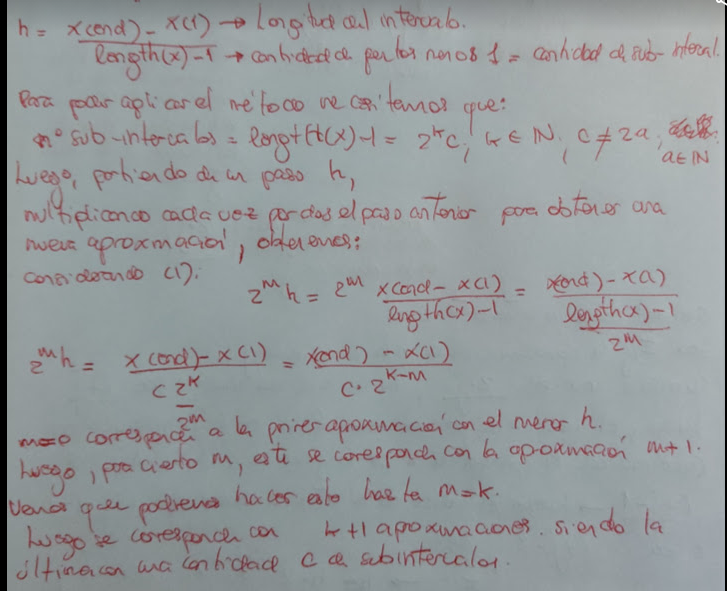 h = x(end) - x(1) → Longitud del intervalo.
length(x) - 1 → cantidad de puntos menos 1 = cantidad de sub-interval.
Para poder aplicar el método necesitamos que:
nº sub-intervalos = length(x)-1 = 2^k c, k ∈ ℕ, c ≠ 2a,
a ∈ ℕ
Luego, partiendo de un paso h,
multiplicando cada vez por dos el paso anterior para obtener una
nueva aproximación, obtenemos:
considerando (1).
2^m h = 2^m (x(end) - x(1)) / (length(x)-1) = (x(end) - x(1)) / ((length(x)-1) / 2^m)
2^m h = (x(end) - x(1)) / (c 2^k / 2^m) = (x(end) - x(1)) / (c · 2^(k-m))
m=0 corresponde a la primer aproximación con el menor h.
Luego, para cierto m, este se corresponde con la aproximación m+1.
Vemos que podremos hacer esto hasta m=k.
Luego se corresponde con k+1 aproximaciones. siendo la
última con una cantidad c de subintervalos.